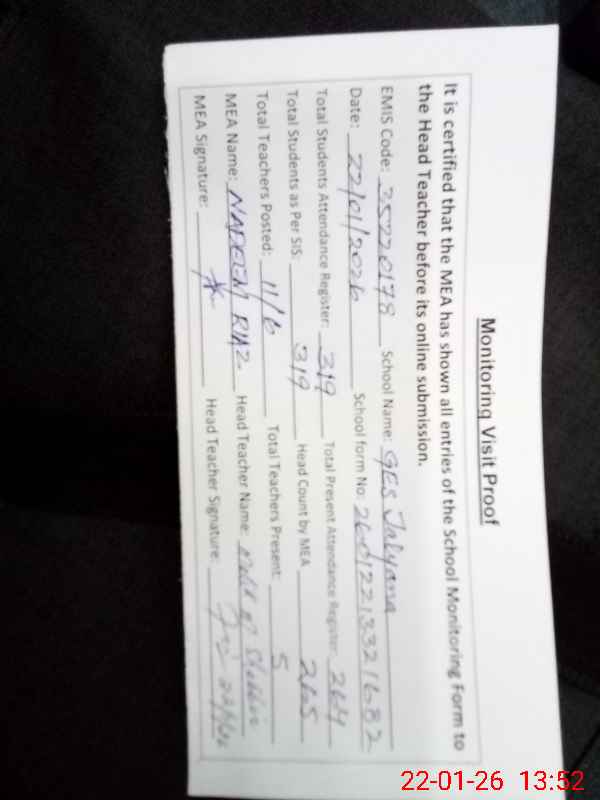 Monitoring Visit Proof
It is certified that the MEA has shown all entries of the School Monitoring Form to
the Head Teacher before its online submission.
EMIS Code: 35220178 School Name: GES Jalyana
Date: 22/01/2026 School form No:
Total Students Attendance Register: 319 Total Present Attendance Register: 264
Total Students as Per SIS: 319 Head Count by MEA 265
Total Teachers Posted: 11/6 Total Teachers Present: 5
MEA Name: NADEEM RIAZ Head Teacher Name:
MEA Signature: Head Teacher Signature:
22-01-26 13:52